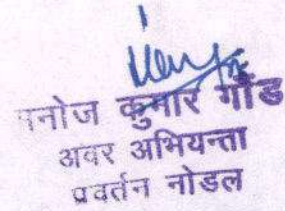 मनोज कुमार गौंड
अवर अभियन्ता
प्रवर्तन नोडल